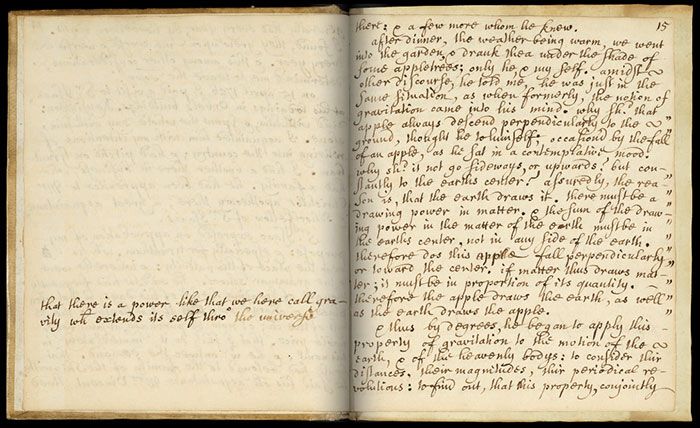 that there is a power like that we here call gra-
vity wh extends its self thro' the universe
15
there: & a few more whom he knew.
after dinner, the weather being warm, we went
into the garden, & drank thea under the shade of
some appletrees; only he, & my self. amidst
other discourse, he told me, he was just in the
same situation, as when formerly, the notion of
gravitation came into his mind. why sh.d that
apple always descend perpendicularly to the
ground, thought he to himself: occasion'd by the fall
of an apple, as he sat in a contemplative mood.
why sh.d it not go sideways, or upwards? but con-
stantly to the earths center? assuredly, the rea-
son is, that the earth draws it. there must be a
drawing power in matter. & the sum of the draw-
ing power in the matter of the earth must be in
the earths center, not in any side of the earth.
therefore dos this apple fall perpendicularly
or toward the center. if matter thus draws mat-
ter; it must be in proportion of its quantity.
therefore the apple draws the earth, as well
as the earth draws the apple.
& thus by degrees, he began to apply this
property of gravitation to the motion of the
earth, & of the heavenly bodys: to consider thir
distances, their magnitudes, thir periodical re-
volutions: to find out, that this property, conjointly